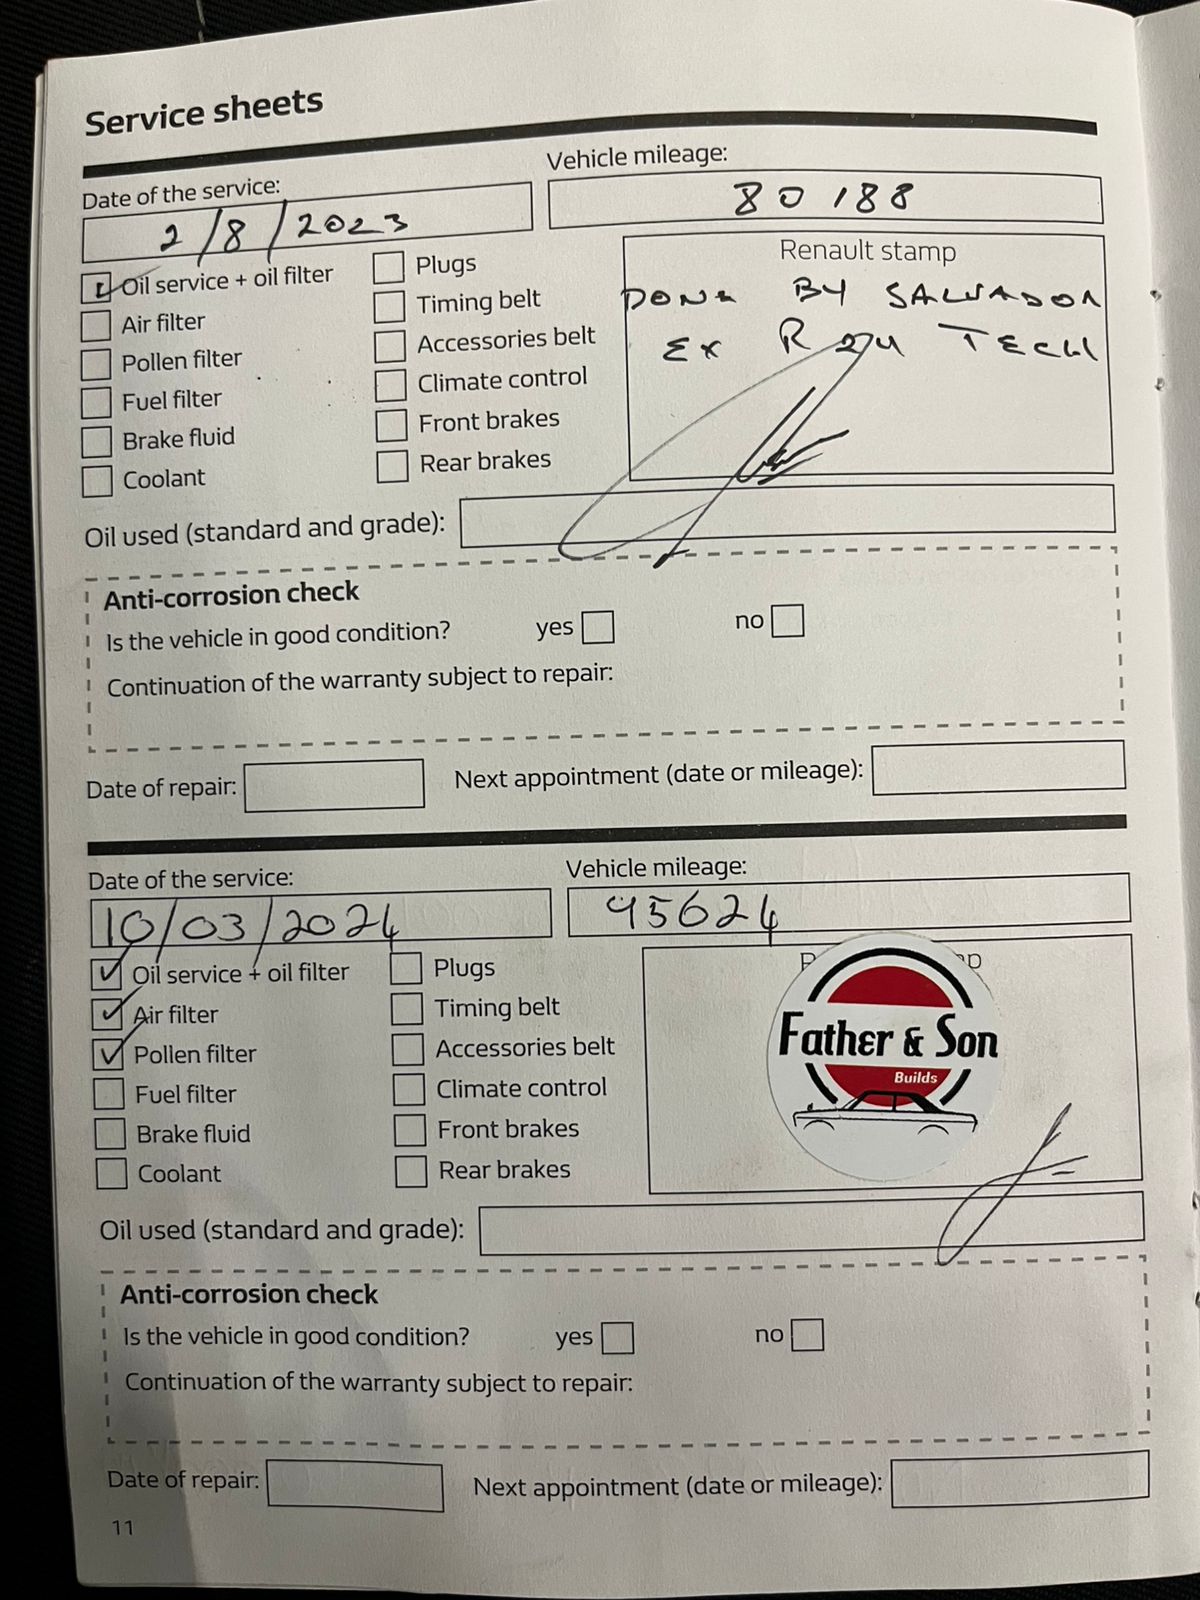 Service sheets
Date of the service:
Vehicle mileage:
2/8/2023
80188
Oil service + oil filter
Plugs
Renault stamp
Air filter
Timing belt
DONE BY SALVADOR
Pollen filter
Accessories belt
EX R TECH
Fuel filter
Climate control
Brake fluid
Front brakes
Coolant
Rear brakes
Oil used (standard and grade):
Anti-corrosion check
Is the vehicle in good condition? yes no
Continuation of the warranty subject to repair:
Date of repair:
Next appointment (date or mileage):
Date of the service:
Vehicle mileage:
10/03/2024
95624
Oil service + oil filter
Plugs
Air filter
Timing belt
Father & Son
Pollen filter
Accessories belt
Builds
Fuel filter
Climate control
Brake fluid
Front brakes
Coolant
Rear brakes
Oil used (standard and grade):
Anti-corrosion check
Is the vehicle in good condition? yes no
Continuation of the warranty subject to repair:
Date of repair:
Next appointment (date or mileage):
11